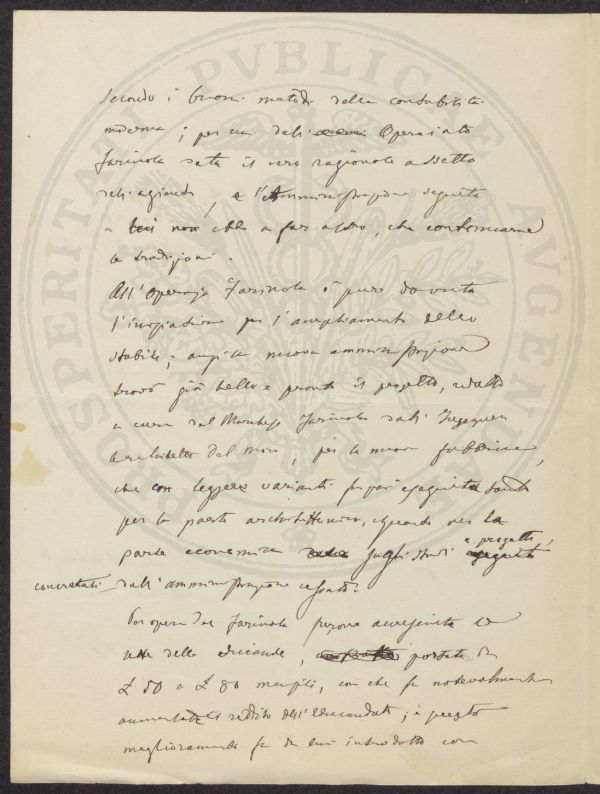 secondo i buoni metodi della contabilità
moderna; per cui dall' Operajato
Farinola data il vero razionale assetto
dell'azienda, e l'Amministrazione seguita
a lui non ebbe a far altro, che continuarne
le tradizioni.
All'Operajo Farinola è pure dovuta
l'iniziativa per l'ampliamento dello
stabile; anzi la nuova amministrazione
trovò già bello e pronto il progetto, redatto
a cura del Marchese Farinola dall' Ingegnere
Architetto Del Moro, per la nuova fabbrica,
che con leggere varianti fu poi eseguita tanto
per la parte architettonica, quanto per la
parte economica sugli studi e progetti,
concretati dall'amministrazione cessata.
Per opera del Farinola furono accresciute le
rette delle educande, portate da
£ 50 a £ 80 mensili, con che fu notevolmente
aumentato il reddito dell'Educandato; e questo
miglioramento fu da lui introdotto con
PROSPERITATI PVBLICAE AVGENDAE